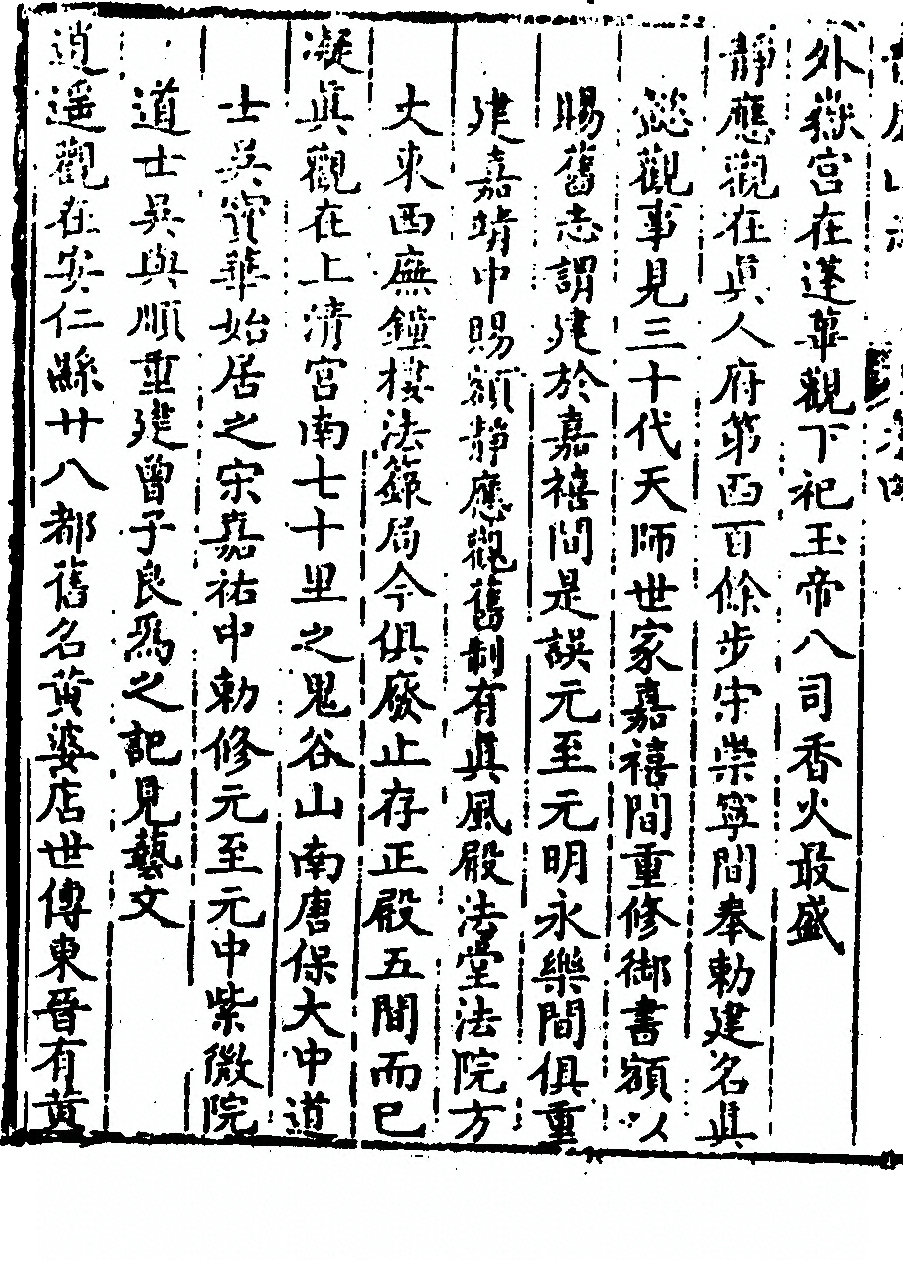 外嶽宮在蓬萊觀下祀玉帝八司香火最盛
靜應觀在眞人府第西百餘步宋崇寧間奉勅建名眞
懿觀事見三十代天師世家嘉禧間重修御書額以
賜舊志謂建於嘉禧間是誤元至元明永樂間俱重
建嘉靖中賜額靜應觀舊制有眞風殿法堂法院方
丈東西廡鐘樓法籙局今俱廢止存正殿五間而已
凝眞觀在上清宮南七十里之鬼谷山南唐保大中道
士吳寶華始居之宋嘉祐中勅修元至元中紫微院
道士吳與順重建曾子良爲之記見藝文
逍遥觀在安仁縣廿八都舊名黃婆店世傳東晉有黃